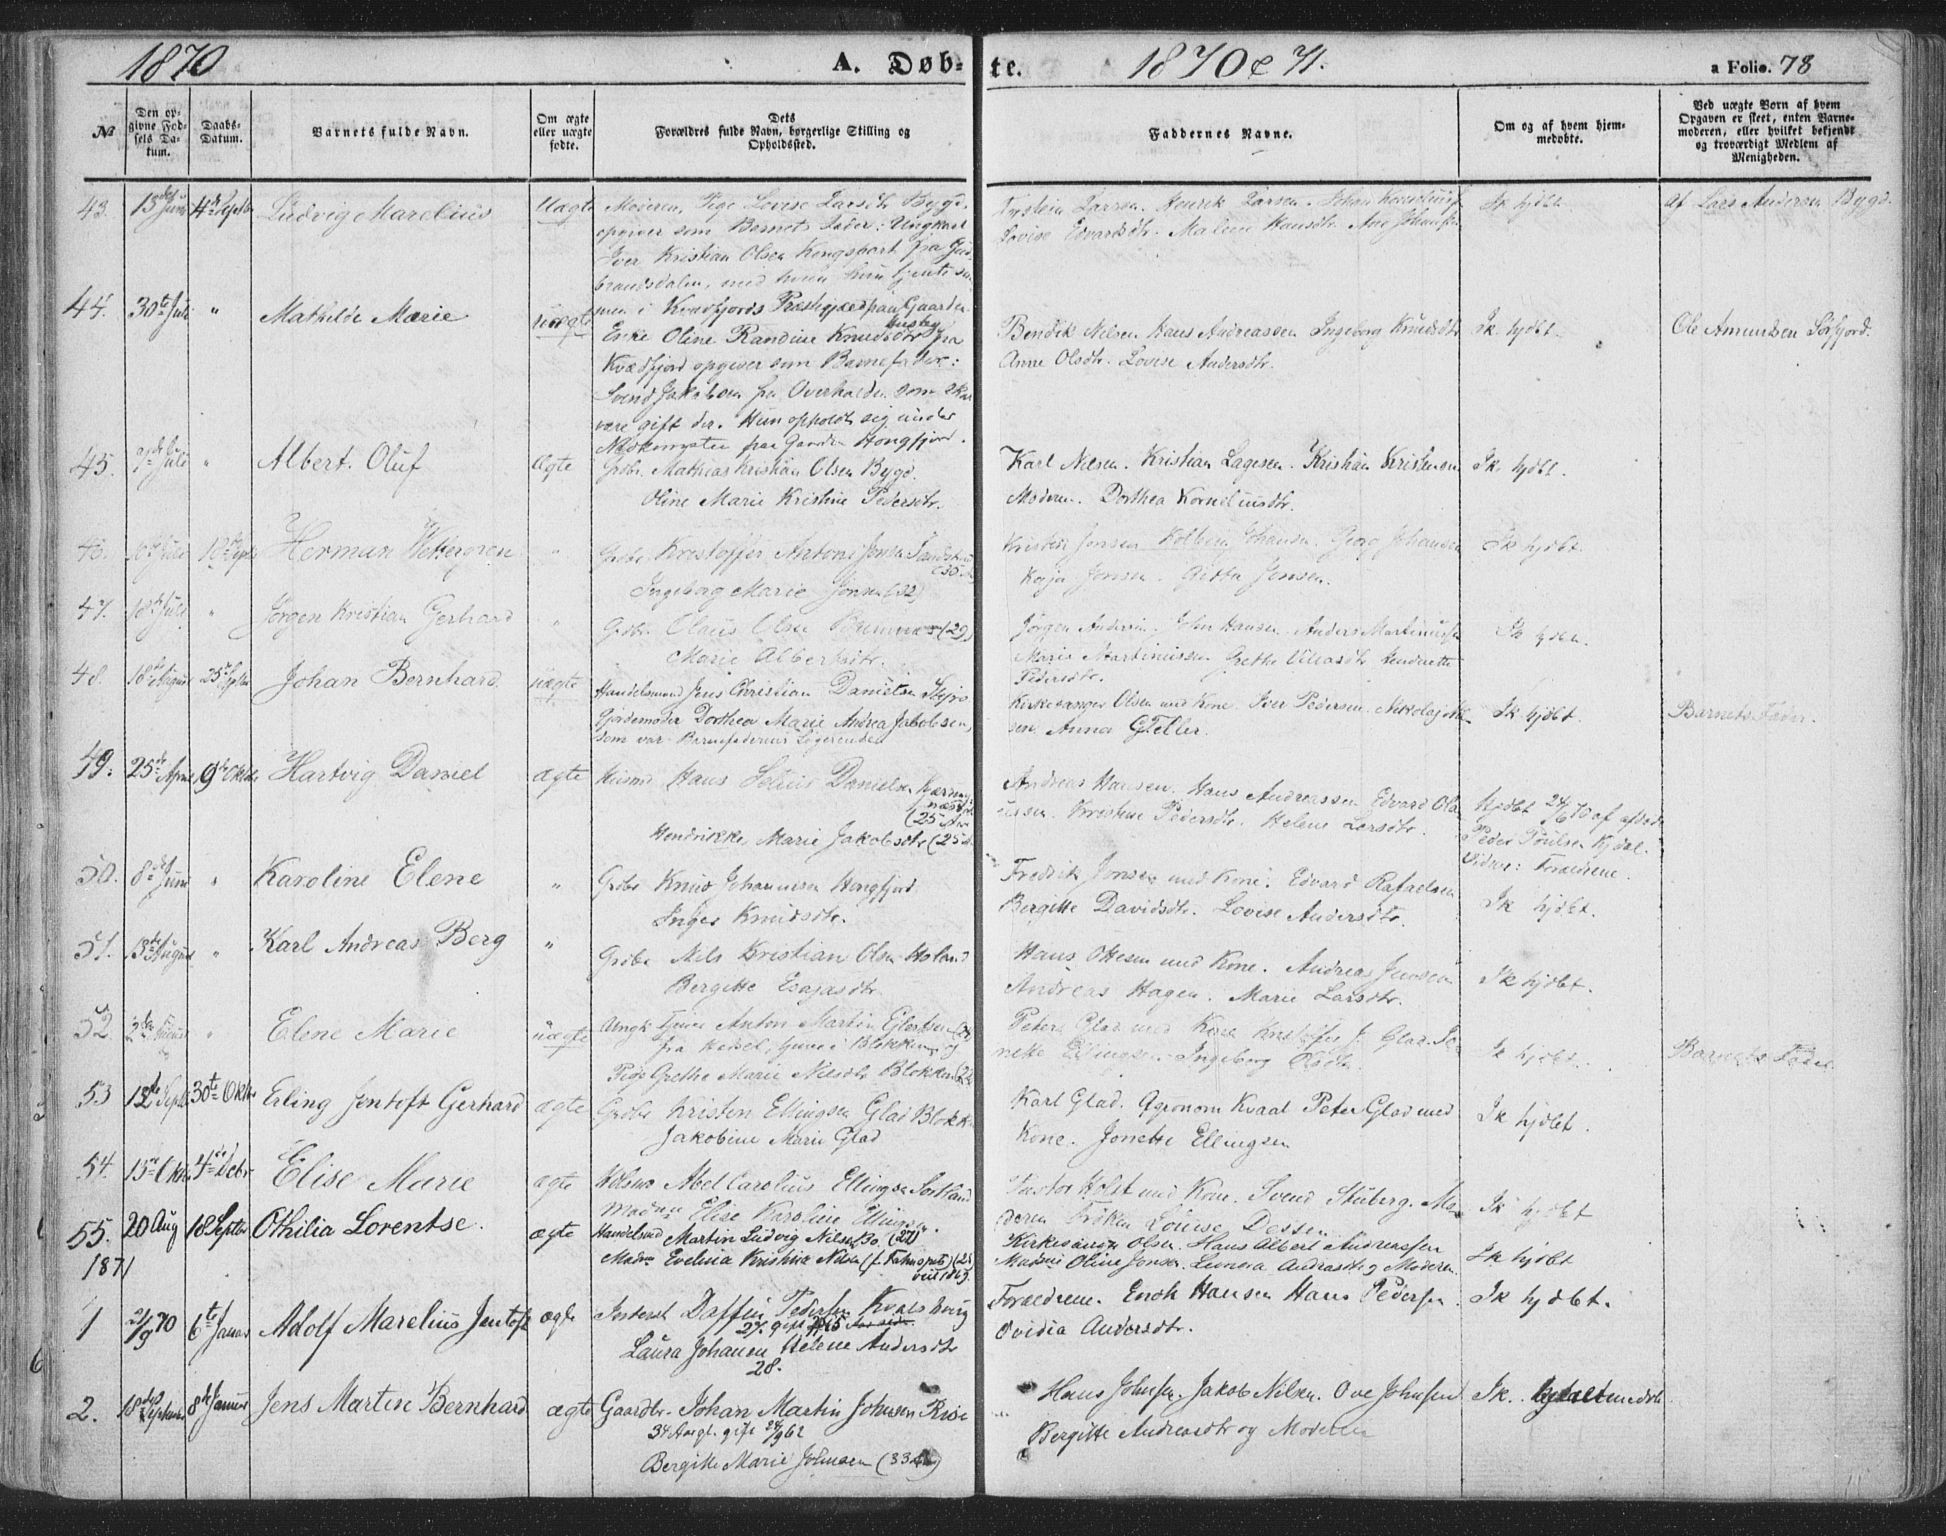 1870
A. Døb-
te.
1870 & 71.
a Folio. 78
No
Den op-
givne Fød-
sels Da-
tum.
Daabs-
Datum.
Barnets fulde Navn.
Om ægte
eller uægte
fødte.
Dets
Forældres fulde Navn, borgerlige Stilling og
Opholdssted.
Faddernes Navne.
Om og af hvem hjem-
medøbte.
Ved uægte Børn af hvem
Opgaven er skeet, enten Barne-
moderen, eller hvilket bekjendt
og troværdigt Medlem af
Menigheden.
43. 13de Juni 4de Septbr Ludvig Marelius Uægte Moderen, Pige Lovise Larsdtr Bygd.
opgiver som Barnets Fader: Ungkarl
Iver Kristian Olsen Kongsbart fra Gud-
brandsdalen, med hvem hun tjente sam-
men i Kvædfjords Præstegaard paa Gaarden
Husby
Øystein Larsen. Henrik Larsen. Johan
Lovise Edvardsdtr. Malene Hansdtr. Ane Johansen
Ik. hjdbt.
Af Lars Andersen Bygd.
44. 30te Juli " Mathilde Marie uægte
Enke Oline Randine Knudsdtr fra
Kvædfjord opgiver som Barnefader:
Svend Jakobsen fra Overhalden som skal
være gift der. Hun opholdt sig under
Nedkomsten paa Gaarden Hongfjord.
Bendik Nilsen Hans Andreassen Ingeborg Knudsdtr
Anne Olsdtr. Lovise Andersdtr.
Ik. hjdbt.
Ole Amundsen Sørfjord.
45. 7de Juli " Albert Oluf Ægte Grdbr. Mathias Kristian Olsen Bygd.
Oline Marie Kristine Pedersdtr.
Karl Nilsen. Kristian Lagesen. Kristian Kristensen
Moderen. Dorthea Korneliusdtr.
Ik. hjdbt.
46. 16de Juli 18de Septbr Herman Wettergren " Grdbr Kristoffer Antoni Jensen
(35 A
Ingeborg Marie Jonsen (32)
Kristen Jonsen Kolberg Johansen. Georg Johansen
Kaja Jensen. Gitta Jensen.
Ik hjdbt.
47. 18de Juli " Jørgen Kristian Gerhard " Grdbr. Olaus Olsen (29)
Marie Albertsdtr.
Jørgen Andersen. John Hansen. Anders Martinussen
Marie Martinussen Grethe Villasdtr Hendrette
Pedersdtr.
Ik hjdbt.
48. 18de August 25de Septbr Johan Bernhard uægte Handelsmand Jens Christian Danielsen
Gjordemoder Dorthea Marie Andrea Jakobsen,
som var Barnefaderens Logerende
Kirkesanger Olsen med Kone. Iver Pedersen. Nikolaj
sen. Anna G Teller.
Ik hjdbt.
Barnets Fader.
49. 25de April 9de Oktbr Hartvig Daniel ægte Husmd Hans Danielsen
(25 Aar
Hendrikke Marie Jakobsdtr (25
Andreas Hansen. Hans Andreassen Edvard Ola-
ussen. Kristine Pedersdtr. Helene Larsdtr.
Hjdbt 24/6 70 af
Peder Poulsen Kjdal.
Vidner: Forældrene.
50. 8de Juni " Karoline Elene " Grdbr Knud Johannesen Hongfjord
Inger Knudsdtr.
Fredrik Jonsen med Kone. Edvard Rafaelsen
Bergitte Davidsdtr. Lovise Andersdtr.
Ik hjdbt.
51. 13de August " Karl Andreas Berg " Grdbr Nils Kristian Olsen Holand
Bergitte Esajasdtr.
Hans Ottesen med Kone. Andreas Jensen
Andreas Hagen. Marie Larsdtr.
Ik hjdbt.
52. 2de August " Elene Marie uægte Ungk. Tjener Anton Martin
fra Hadsel, tjener i Blokken og
Pige Grethe Marie Nilsdtr Blokken
Peter Glad med Kone Kristoffer J. Glad. Jo-
nette Ellingsen. Ingeborg Olsdtr.
Ik hjdbt.
Barnets Fader
53 13de Septbr 30te Oktbr Erling Jentoft Gerhard ægte Grdbr Kristen Ellingsen Glad Blokken
Jakobine Marie Glad
Karl Glad. Agronom Kvaal Peter Glad med
Kone. Jonette Ellingsen
Ik hjdbt.
54. 15de Oktbr 4de Debr Elise Marie ægte Abel Carolius Ellingsen Sortland
Madme Elise Karoline Ellingsen.
Pastor Holst med Kone. Svend Stuberg. Mo-
deren Frøken Louise
Ik hjdbt
55. 20 Aug 18 Septbr Othilia Lorentse. ægte Handelsmd Martin Ludvig Nilsen Bø. (27)
Madm Evelina Kristina Nilsen (f. Falmspets) (25
viet 1869.
Kirkesanger Olsen. Hans Albert Andreassen
Madme Oline Jonsen. Leonora Andreasdtr og Moderen.
Ik hjdbt
1871
1 2/9 70 6te Januar Adolf Marelius Jentoft ægte Inderst Daffin Pedersen
27. gift
Laura Johanna Helene Andersdtr
28.
Forældrene. Enok Hansen Hans Pedersen.
Ovidia Andersdtr.
Ik hjdbt.
2. 18de Septembr 8de Januar Jens Martin Bernhard ægte Gaardbr. Johan Martin Johnsen Risø
34 Aargl. gift 28/9 62
Bergitte Marie Johnsen (33 )
Hans Johnsen. Jakob Nilsen. Ove Johnsen
Bergitte Andreasdtr og Moderen
Ik.